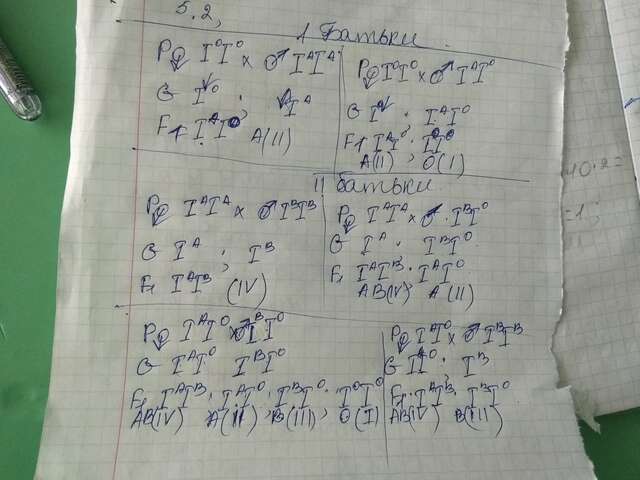 5.2,
I Батьки
P ♀ I⁰I⁰ × ♂ IᴬIᴬ
G I⁰ ; Iᴬ
F₁ IᴬI⁰ A(II)
P ♀ I⁰I⁰ × ♂ IᴬI⁰
G I⁰ ; IᴬI⁰
F₁ IᴬI⁰ ; I⁰I⁰
A(II) ; O(I)
II батьки
P ♀ IᴬIᴬ × ♂ IᴮIᴮ
G Iᴬ ; Iᴮ
F₁ IᴬIᴮ (IV)
P ♀ IᴬIᴬ × ♂ IᴮI⁰
G Iᴬ ; IᴮI⁰
F₁ IᴬIᴮ ; IᴬI⁰
AB(IV) A(II)
P ♀ IᴬI⁰ × ♂ IᴮI⁰
G IᴬI⁰ IᴮI⁰
F₁ IᴬIᴮ ; IᴬI⁰ ; IᴮI⁰ ; I⁰I⁰
AB(IV) A(II) ; B(III) ; O(I)
P ♀ IᴬI⁰ × ♂ IᴮIᴮ
G IᴬI⁰ ; Iᴮ
F₁ IᴬIᴮ ; IᴮI⁰
AB(IV) B(III)